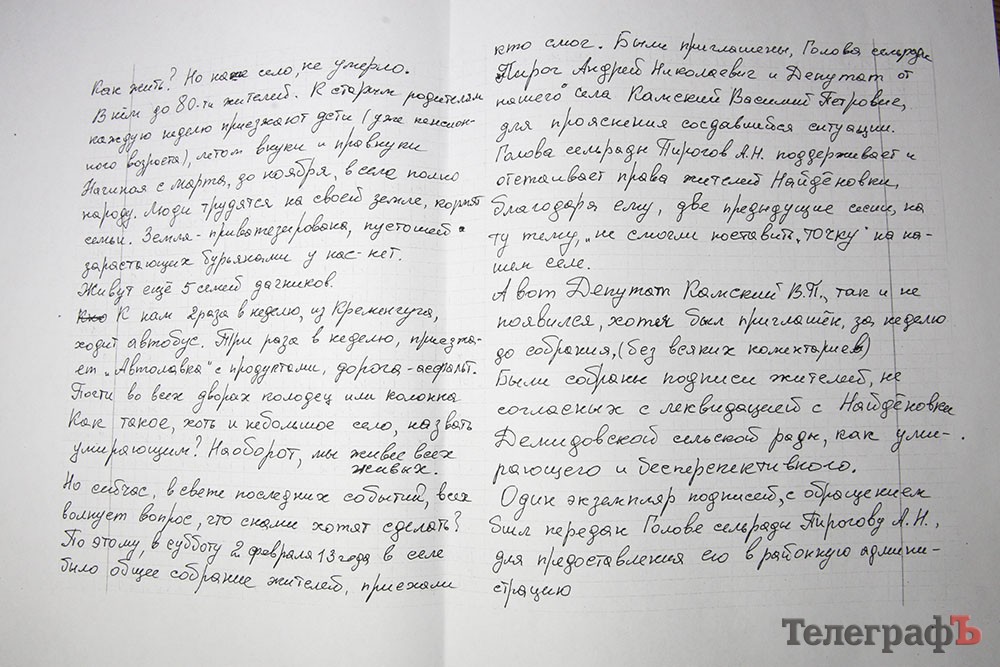 Как жить? Но наше село, не умерло.
В нём до 80-ти жителей. К старым родителям
каждую неделю приезжают дети (уже пенсион-
ного возроста), летом внуки и правнуки
Начиная с марта, до ноября, в селе полно
народу. Люди трудятся на своей земле, кормят
семьи. Земля - приватезирована, пустошей
зарастающих бурьянами у нас - нет.
Живут ещё 5 семей дачников.
К нам 2 раза в неделю, из Кременчуга,
ходит автобус. Три раза в неделю, приезжа-
ет „Автолавка" с продуктами, дорога - асфальт.
Почти во всех дворах колодец или колонка
Как такое, хоть и небольшое село, назвать
умирающим? Наоборот, мы живее всех
живых.
Но сейчас, в свете последних событий, всех
волнует вопрос, что с нами хотят сделать?
По этому, в субботу 2 февраля 13 года в селе
было общее собрание жителей, приехали
кто смог. Были приглашены, Голова сельради
Пирог Андрей Николаевич и Депутат от
нашего села Камский Василий Петрович,
для прояснения создавшейся ситуации.
Голова сельради Пирогов А.Н. поддерживает и
отстаивает права жителей Найдёновки,
благодаря ему, две предыдущие сесии, на
ту тему, „не смогли поставить „ТОЧКУ" на на-
шем селе.
А вот Депутат Камский В.П., так и не
появился, хотя был приглашён, за неделю
до собрания, (без всяких коментариев)
Были собраны подписи жителей, не
согласных с леквидацией с Найдёновки
Демидовской сельской ради, как уми-
рающего и бесперспективного.
Один экземпляр подписей, с обращением
был передан Голове сельради Пирогову А.Н.,
для предоставления его в районную админи-
страцию
ТелеграфЪ